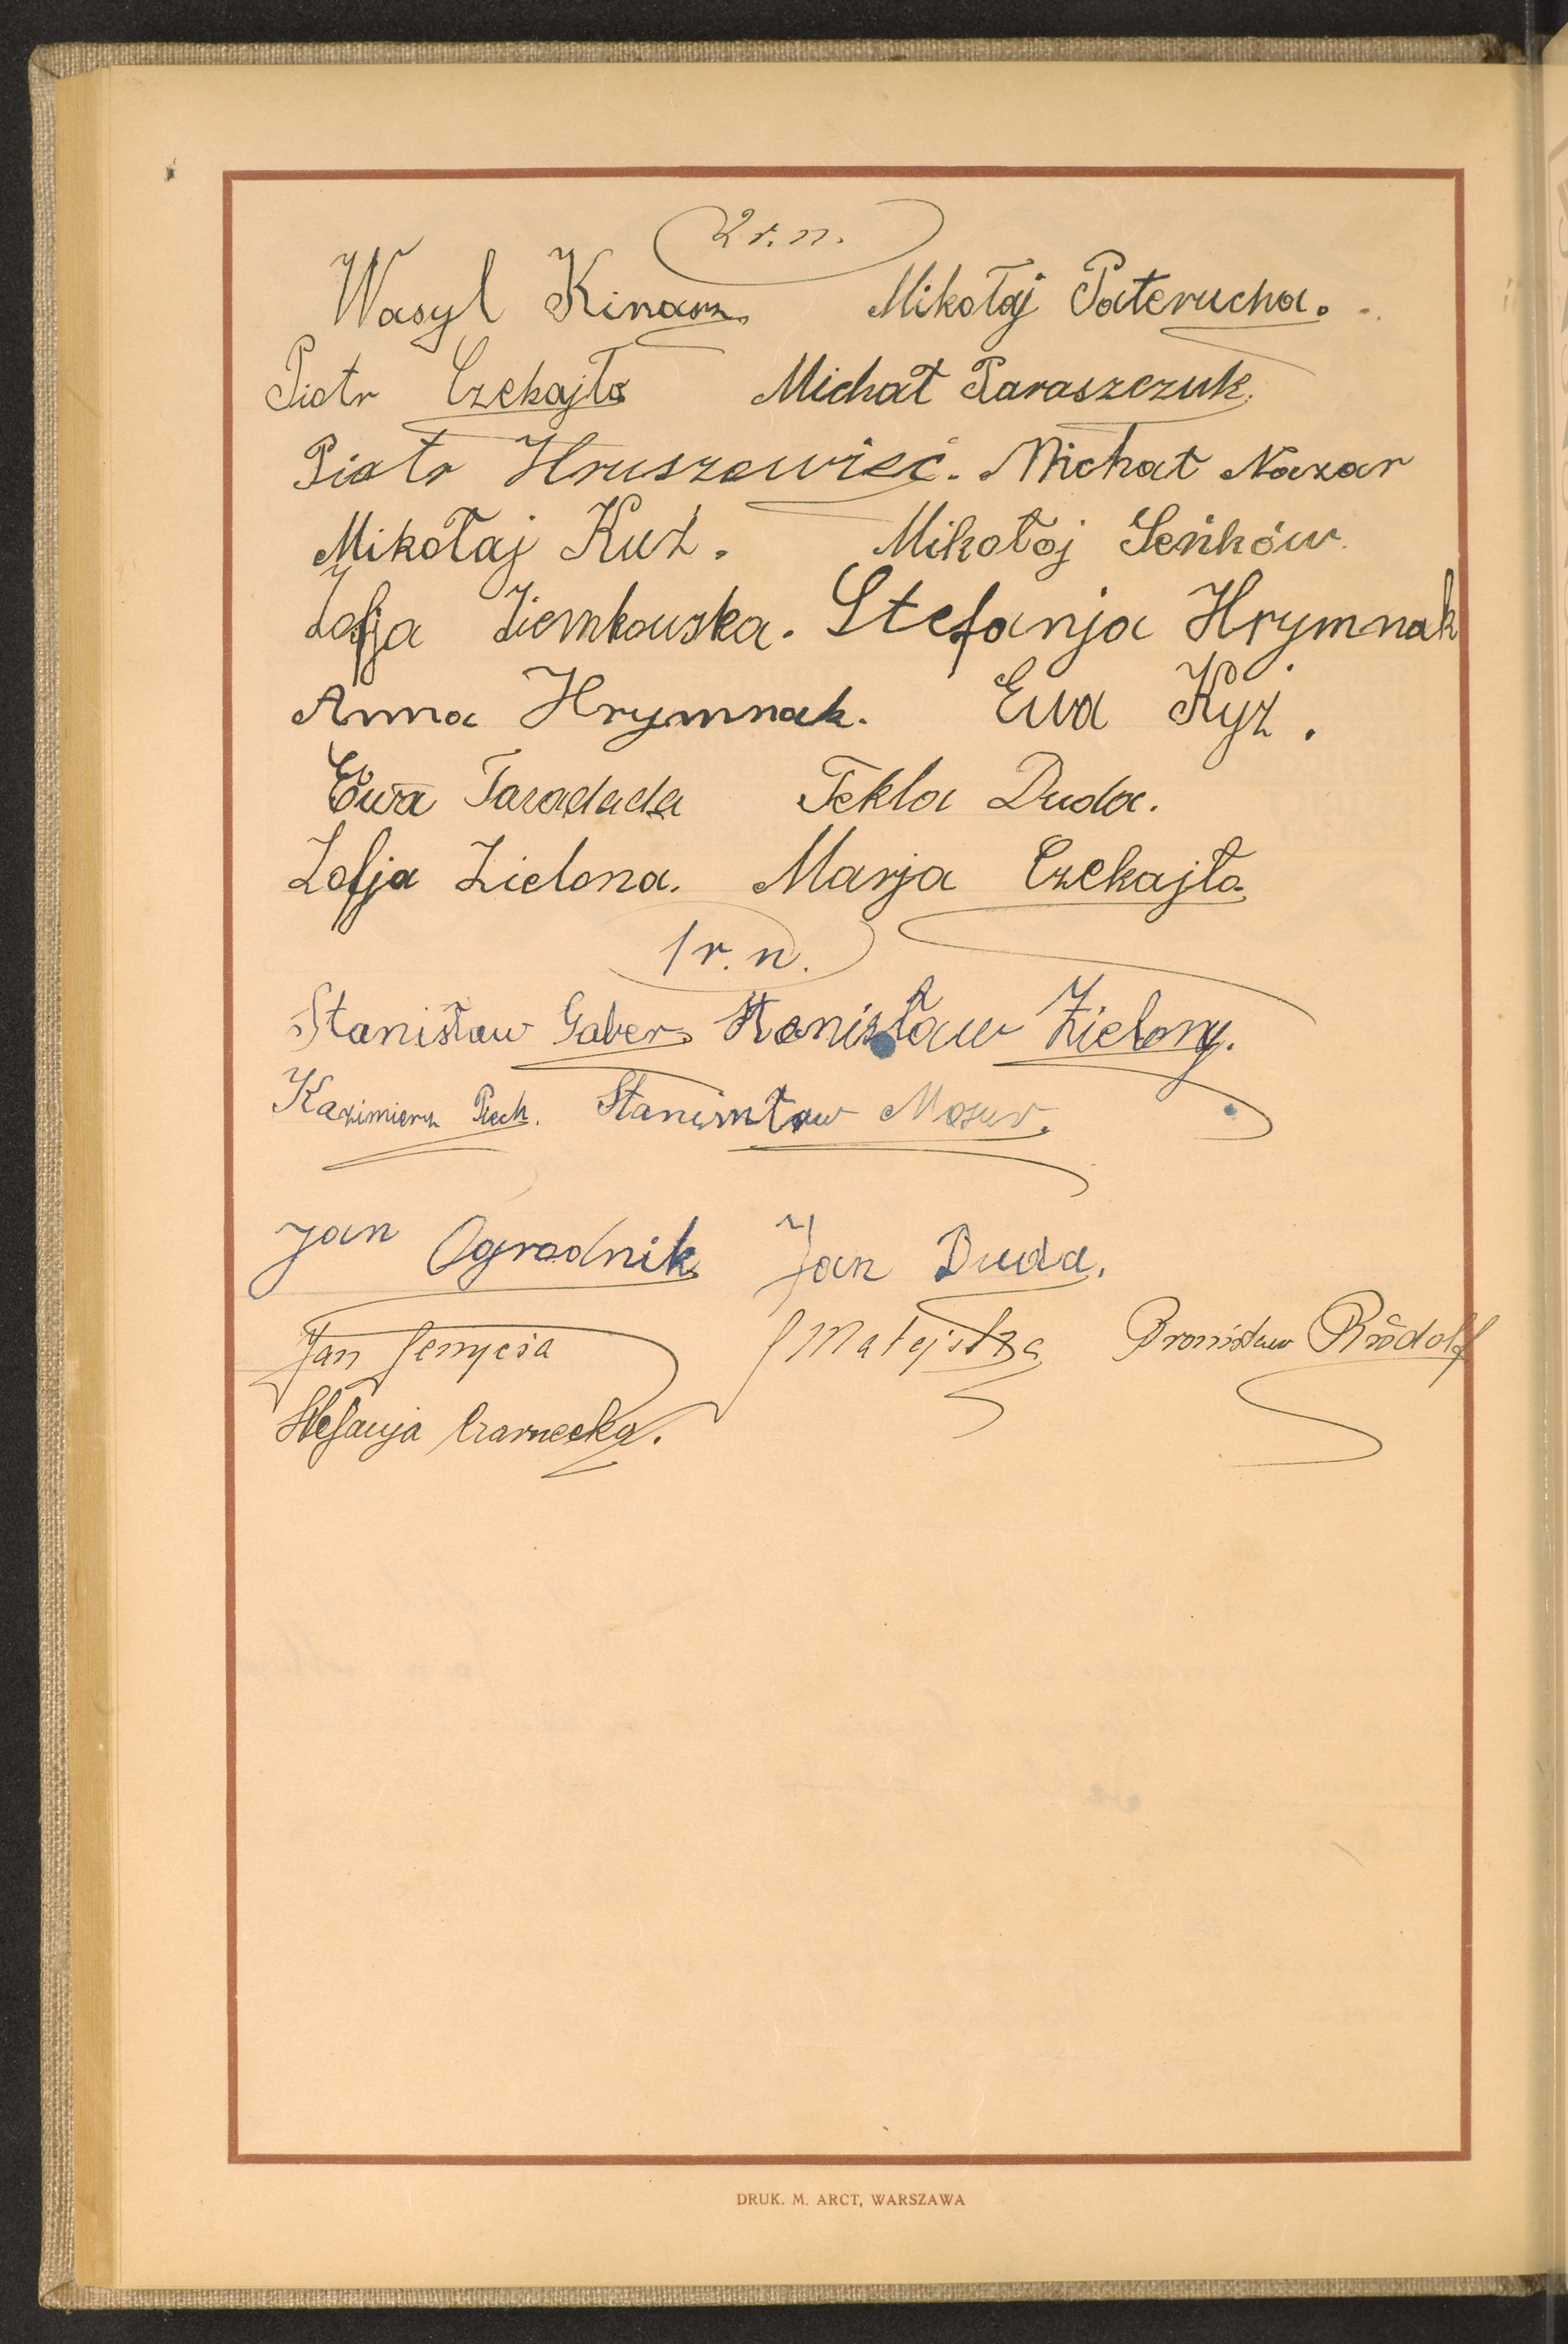 2 r. n.
Wasyl Kinasz. Mikołaj Paterucha.
Piotr Czekajło Michał Paraszczuk.
Piotr Hruszowiec. Michał Nazar
Mikołaj Kuź. Mikołaj Seńków.
Zofja Ziemkowska. Stefanja Hrymnak
Anna Hrymnak. Ewa Kyż.
Ewa Taradada Tekla Duda.
Zofja Zielona. Marja Czekajło.
1 r. n.
Stanisław Gaber. Stanisław Zielony.
Kazimierz Piech. Stanisław Mazur.
Jan Ogrodnik Jan Duda.
Jan Bronisław Rudolf
Stefanja Czarnecka.
DRUK. M. ARCT, WARSZAWA